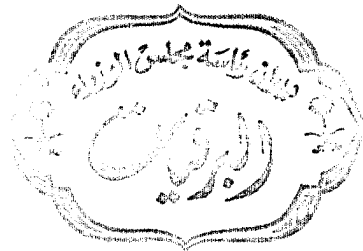 ديوان رئاسة مجلس الوزراء
البرقيات